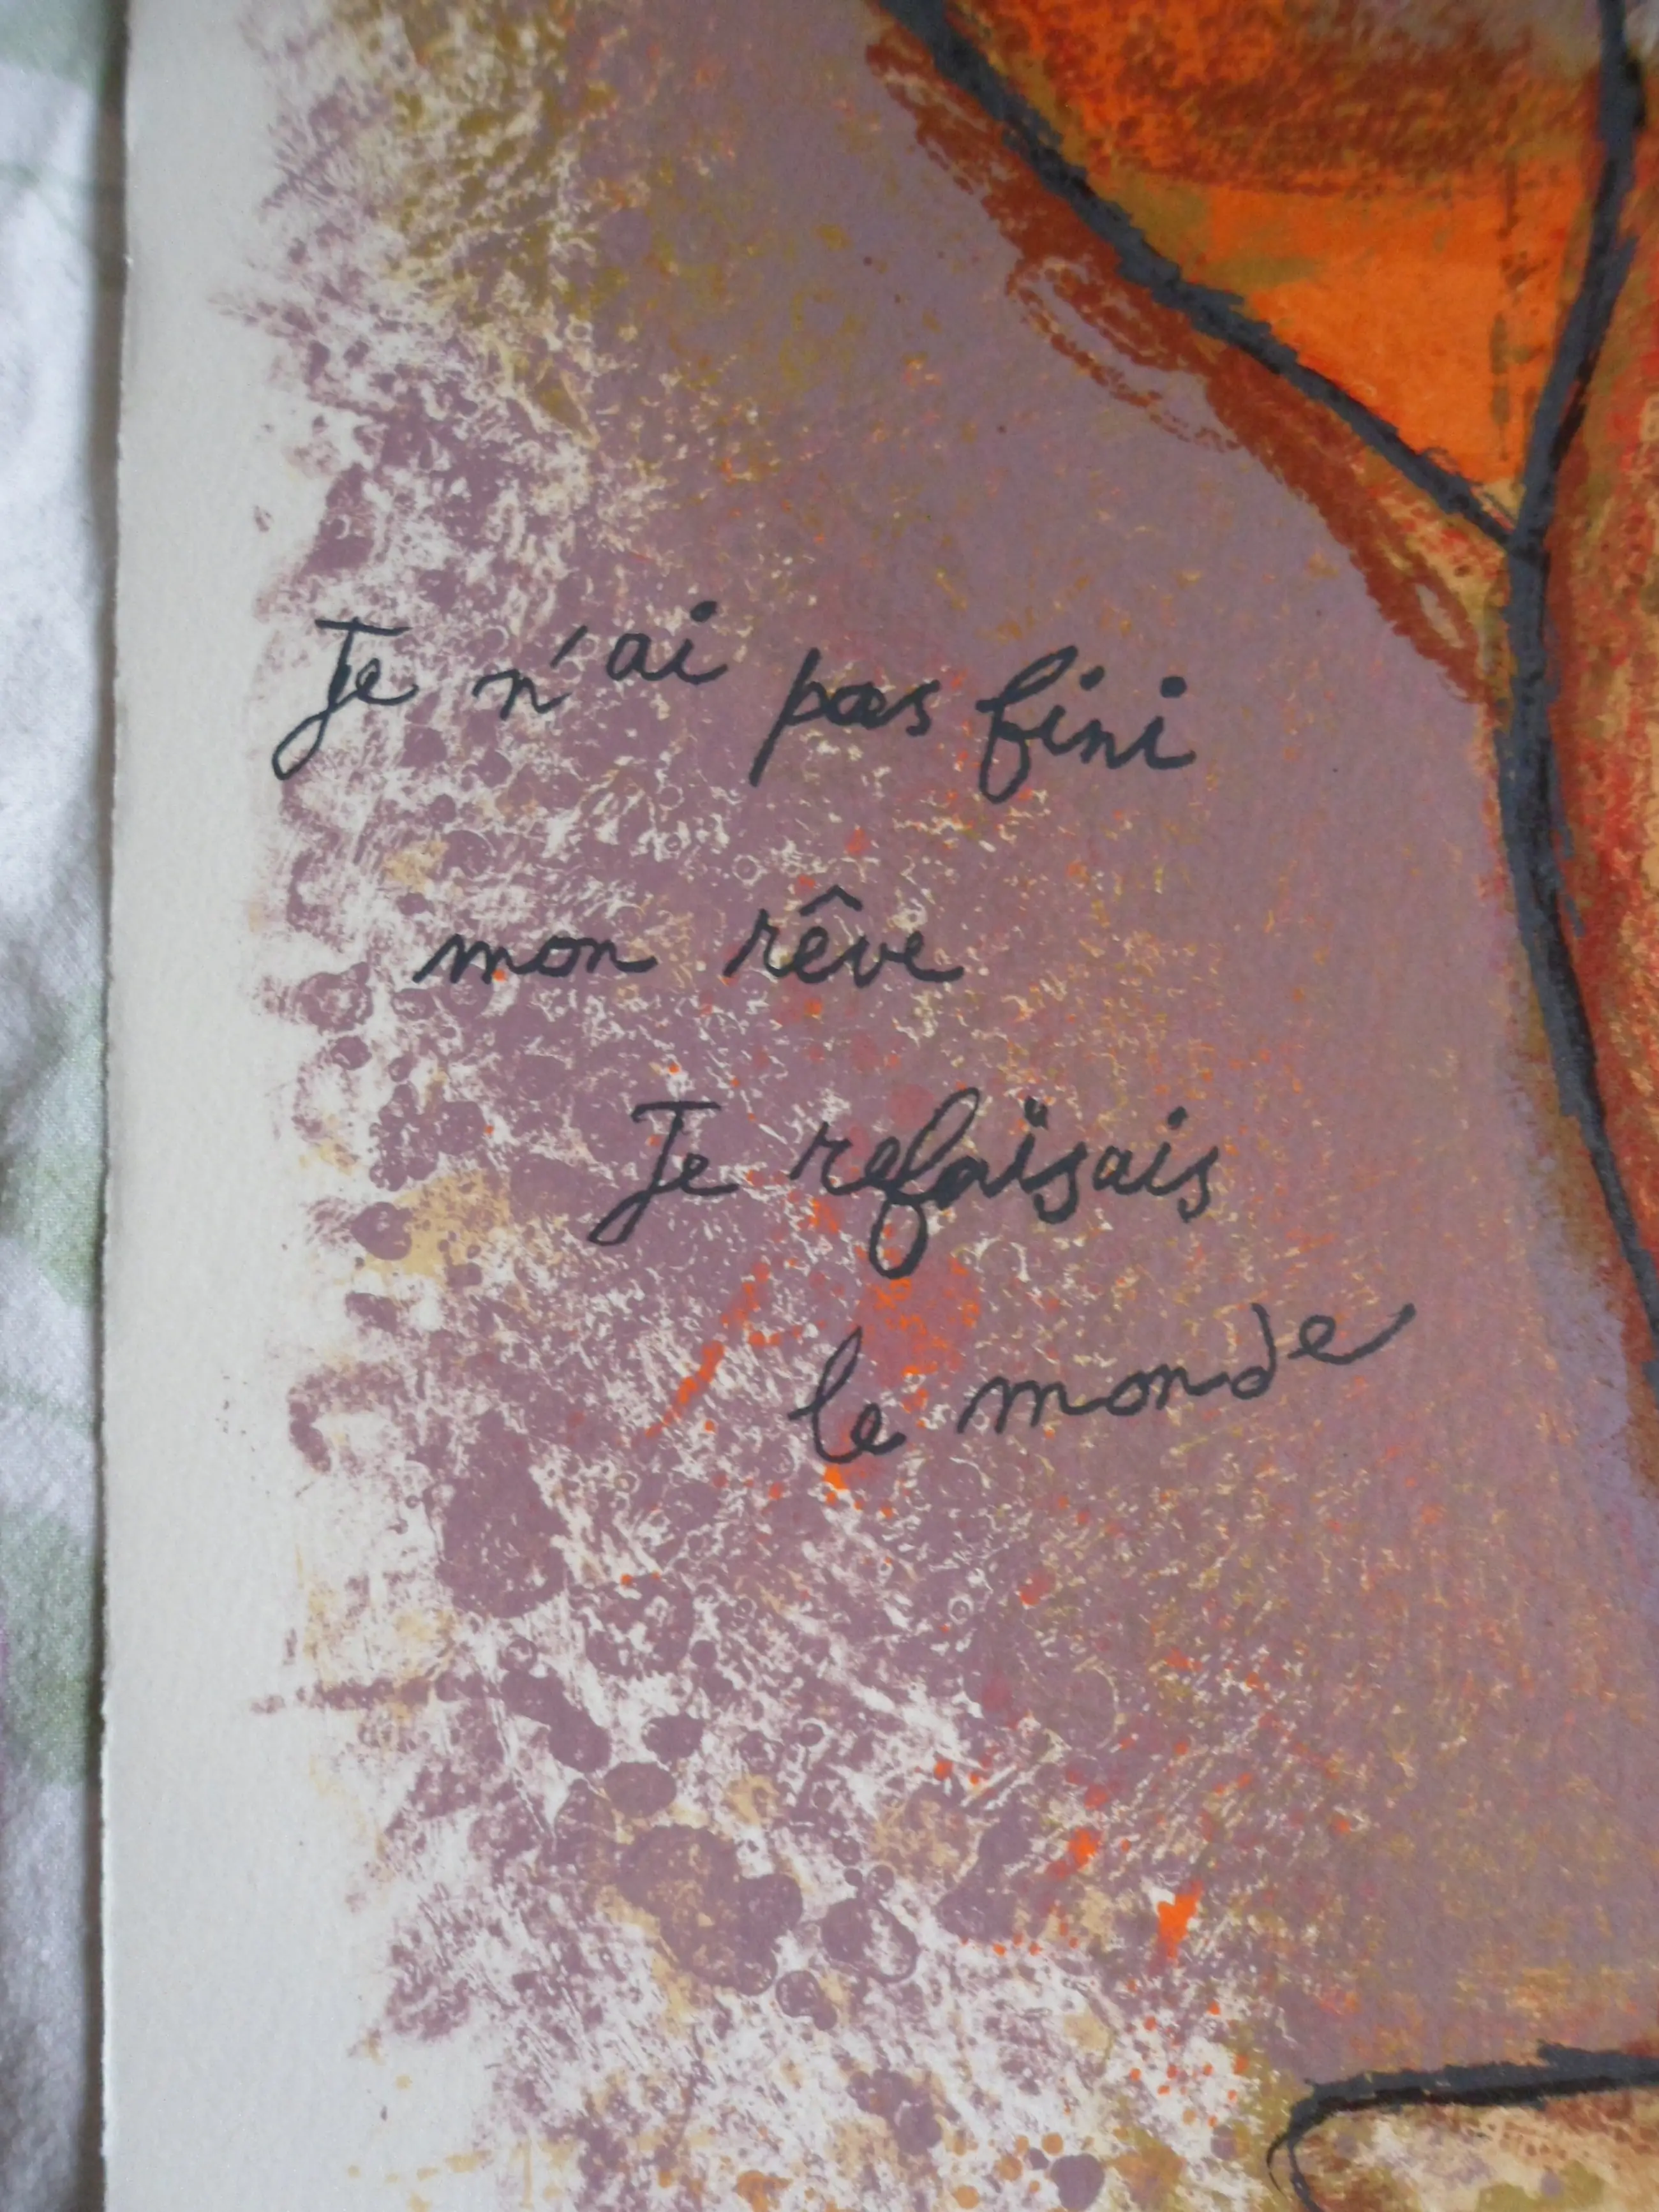 Je n'ai pas fini
mon rêve
Je refaïsais
le monde